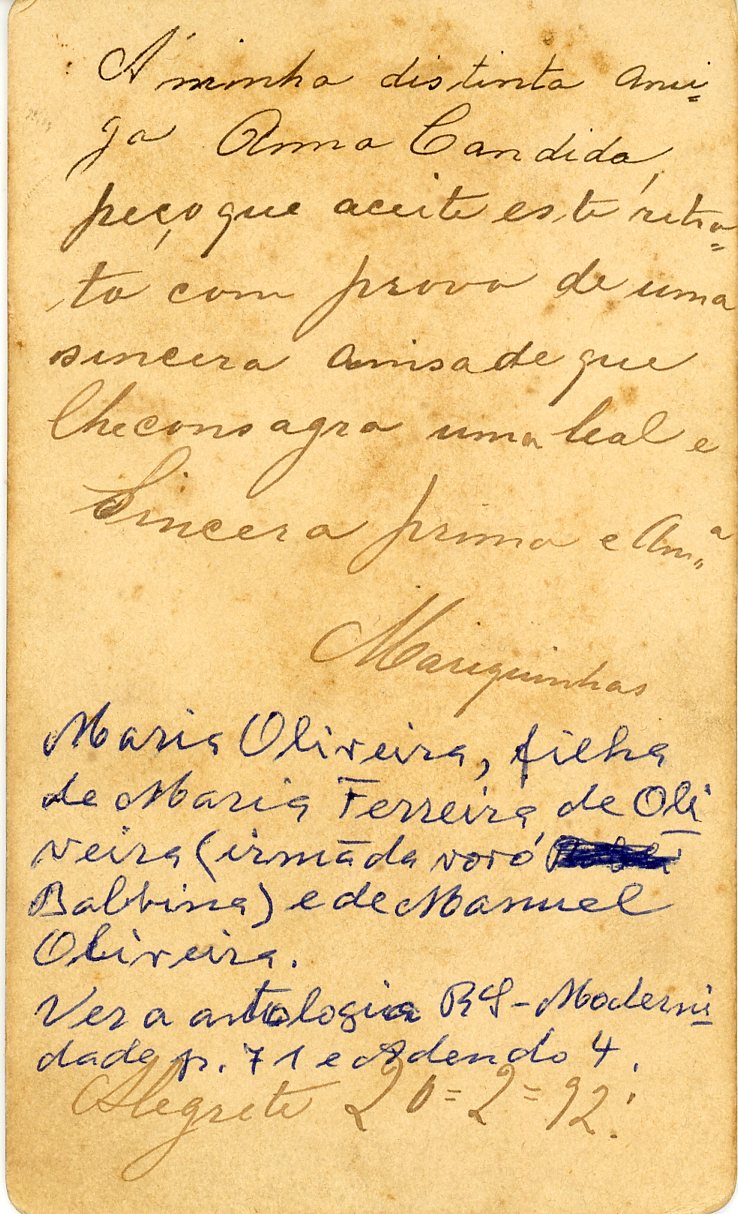 A' minha distinta ami=
ga Anna Candida,
peço que aceite este retra=
to com prova de uma
sincera amisade que
lhe consagra uma leal e
Sincera prima e Am.ª
Mariquinhas
Maria Oliveira, filha
de Maria Ferreira de Oli
veira (irmã da vovó
Balbina) e de Manuel
Oliveira.
Ver a antologia RS-Moderni
dade p. 71 e Adendo 4.
Alegrete 20=2=92.